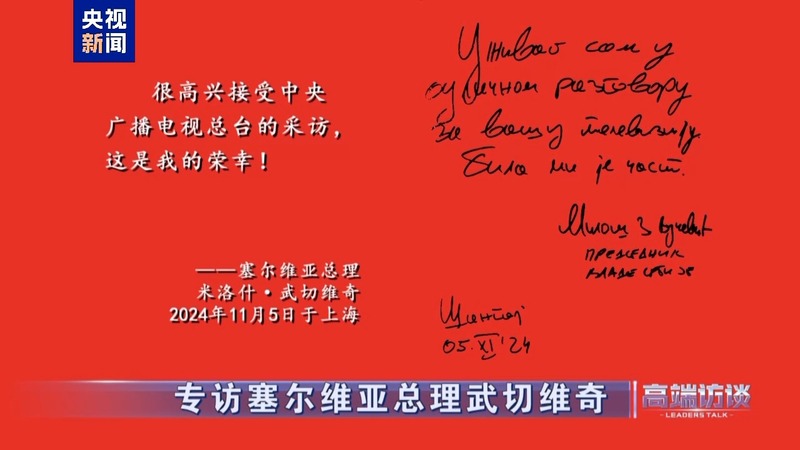 央视
新闻
很高兴接受中央
广播电视总台的采访，
这是我的荣幸！
——塞尔维亚总理
米洛什·武切维奇
2024年11月5日于上海
Уживао сам у
одличном разговору
за вашу телевизију.
Била ми је част.
Милош Вучевић
ПРЕДСЕДНИК
ВЛАДЕ СРБИЈЕ
Шангај
05. XI '24
专访塞尔维亚总理武切维奇
高端访谈
LEADERS TALK